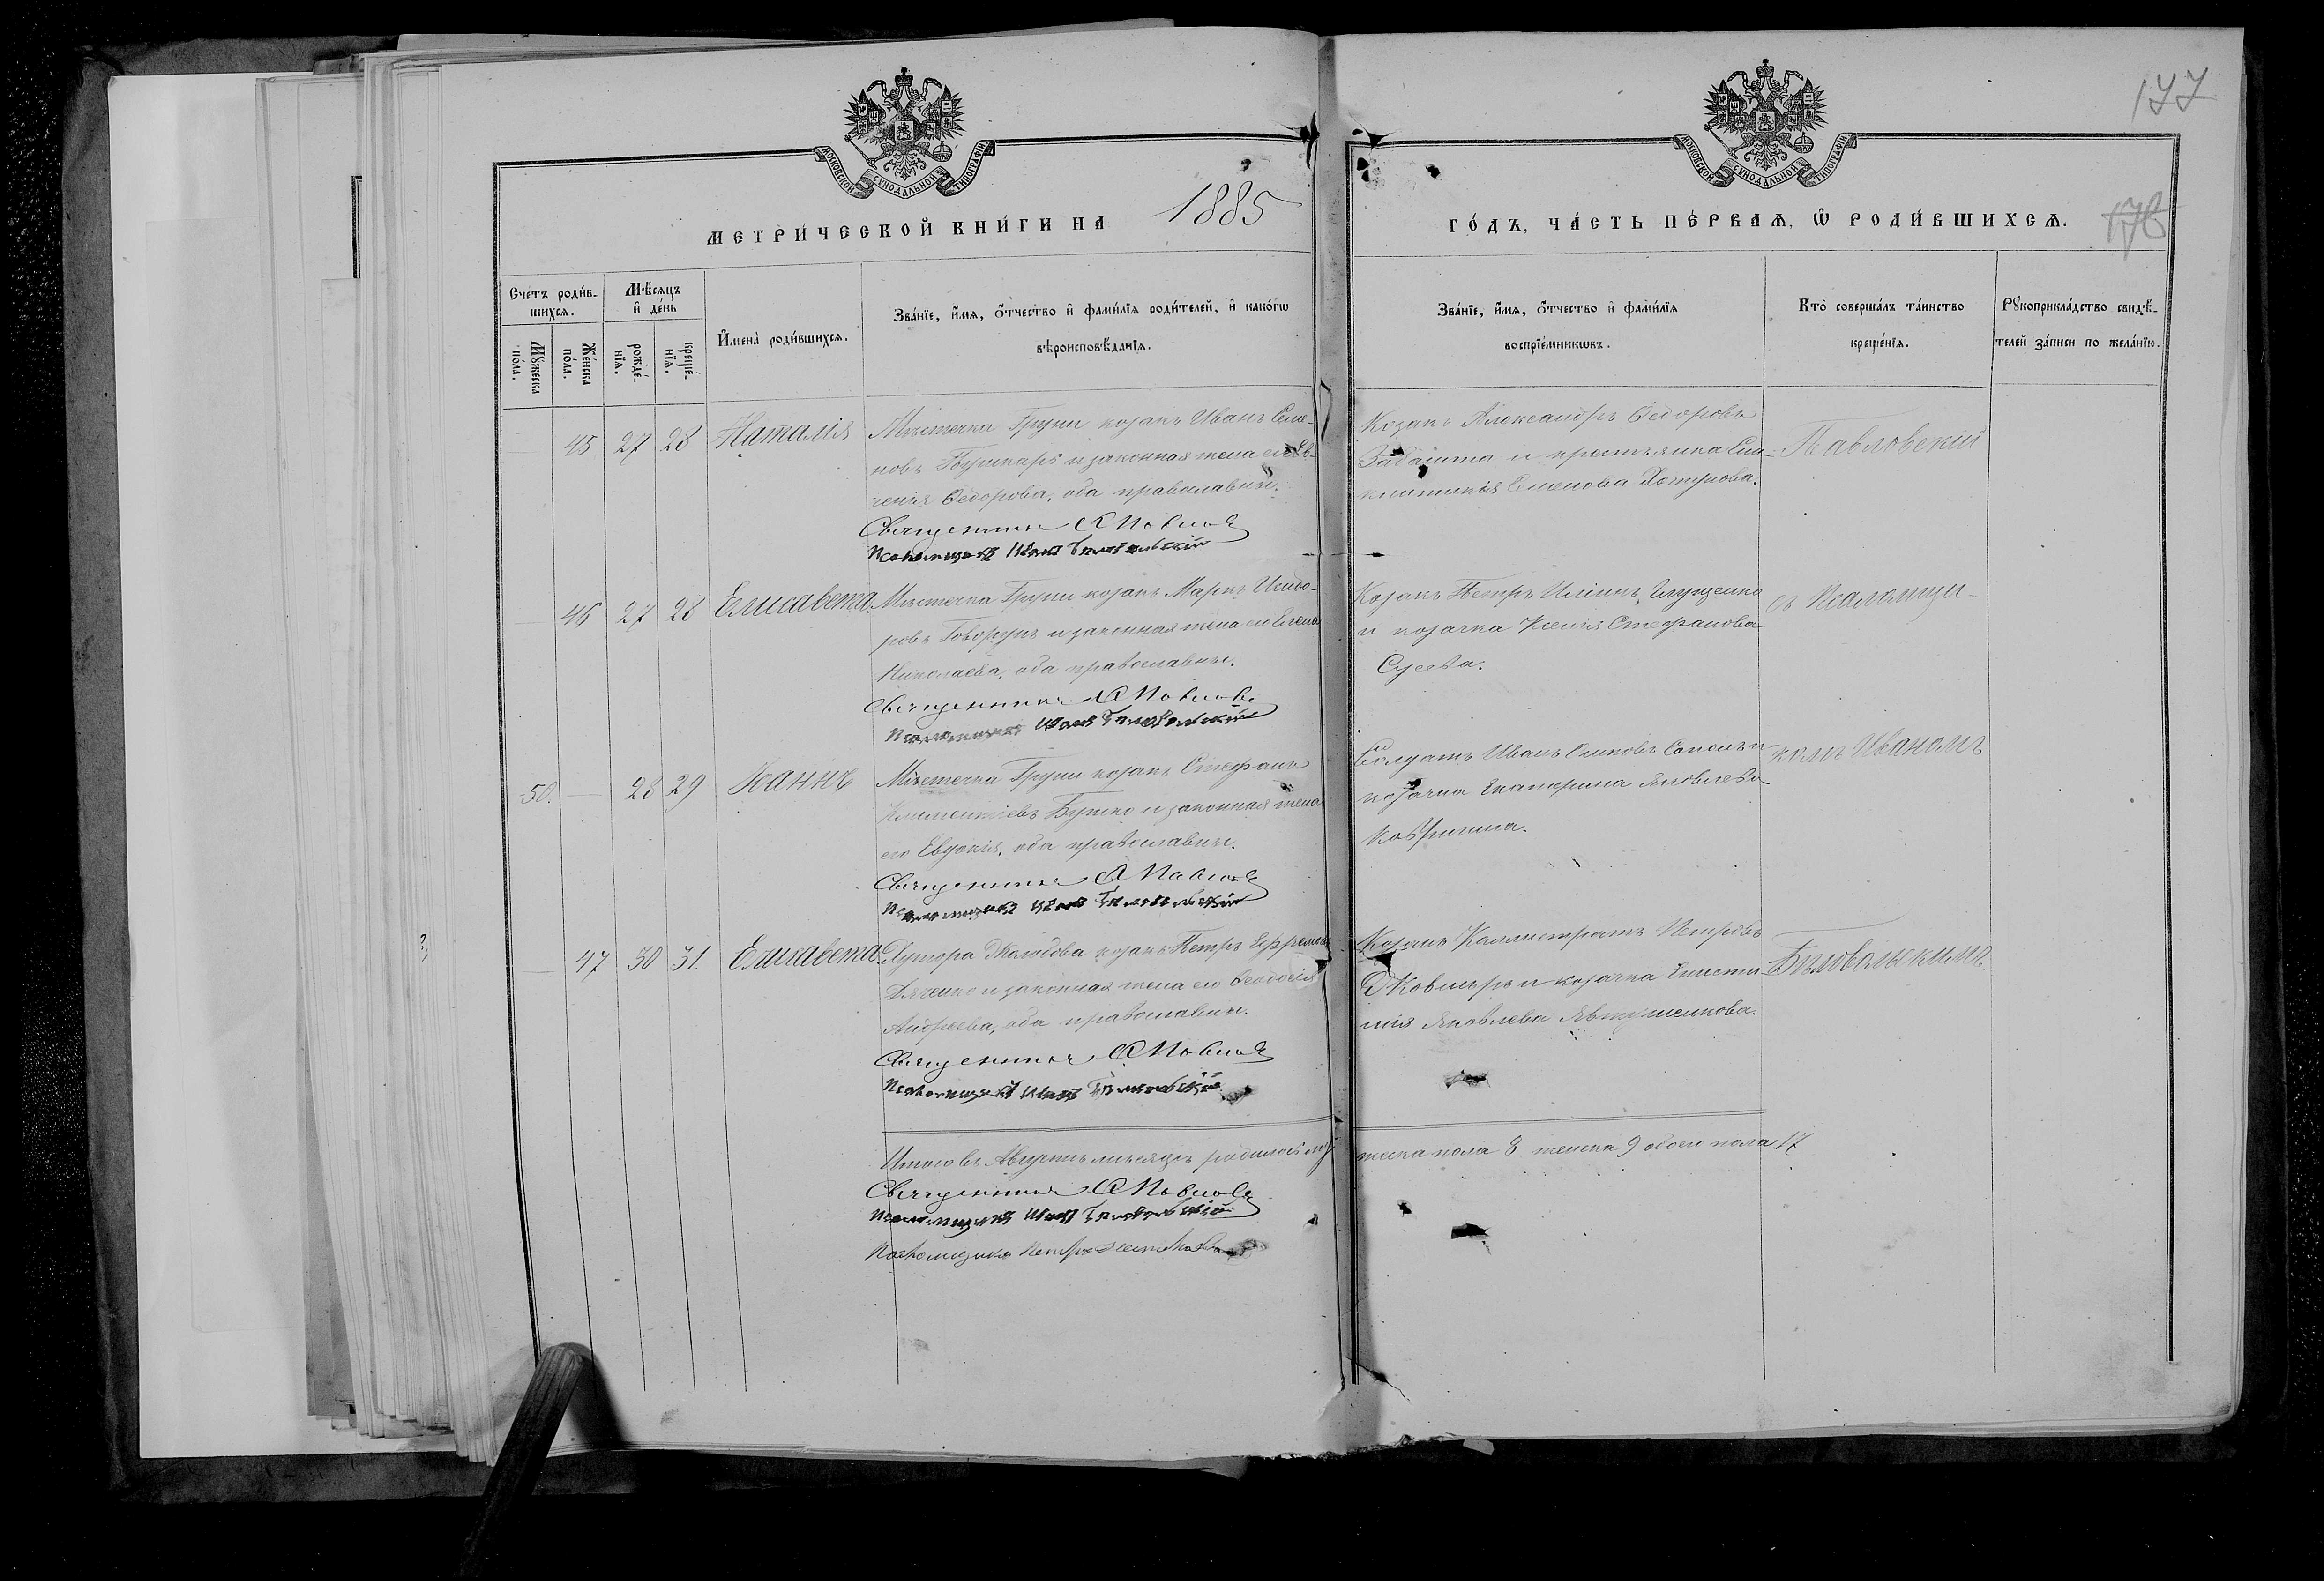 177
МОСКОВСКОЙ СѴНОДАЛЬНОЙ ТИПОГРАФІИ
МОСКОВСКОЙ СѴНОДАЛЬНОЙ ТИПОГРАФІИ
МЕТРИ́ЧЕСКОЙ КНИ́ГИ НА 1885
ГО́ДЪ, ЧА́СТЬ ПЕ́РВАЯ, Ѡ҆ РОДИ́ВШИХСЯ.
176
Счетъ роди́в-
шихся.
Мѣсяцъ
и҆ де́нь
Мꙋжеска
по́ла.
Же́нска
по́ла.
рожде́-
нїя.
креще́-
нїя.
И҆мена̀ роди́вшихся.
Зва́нїе, и҆́мя, ѻ҆́тчество и҆ фами́лїя роди́телей, и҆ како́гѡ
вѣроисповѣ́данїя.
Зва́нїе, и҆́мя, ѻ҆́тчество и҆ фами́лїя
воспрїе́мникѡвъ.
Кто̀ соверша́лъ та́инство
креще́нїя.
Рꙋкоприкла́дство свидѣ́-
телей за́писи по жела́нїю.
45 27 28 Наталія
Мѣстечка Груни козакъ Иванъ Семе-
новъ Бушкарь и законная жена его Ев-
генія Ѳедорова, оба православные.
Священникъ А Павловъ
Псаломщикъ Иванъ
Козакъ Александръ Ѳедоровъ
и крестьянка
Семенова
Павловскій
46 27 28 Елисавета
Мѣстечка Груни козакъ Маркъ Исидо-
ровъ Говорунъ и законная жена его Елена
Николаева, оба православные.
Священникъ А Павловъ
Псаломщикъ Иванъ
Козакъ Петръ Ильинъ Глущенко
и козачка Ксенія Стефанова
Сусева.
съ Псаломщи-
50. 28 29 Іоаннъ
Мѣстечка Груни козакъ Стефанъ
Климентіевъ Бутко и законная жена
его Евдокія, оба православные.
Священникъ А Павловъ
Псаломщикъ Иванъ
Солдатъ Иванъ
козачка Екатерина Яковлева
комъ Иваномъ
47 30 31. Елисавета
Хутора козакъ Петръ Ефремовъ
Дяченко и законная жена его Ѳеодосія
Андреева, оба православные.
Священникъ А Павловъ
Псаломщикъ Иванъ
Козакъ Каллистратъ Петровъ
и козачка
Яковлева Явтушенкова.
Бѣловольскимъ.
Итого въ Августѣ мѣсяцѣ родилось му-
жеска пола 8 женска 9 обоего пола 17
Священникъ А Павловъ
Псаломщикъ Иванъ
Псаломщикъ Петръ